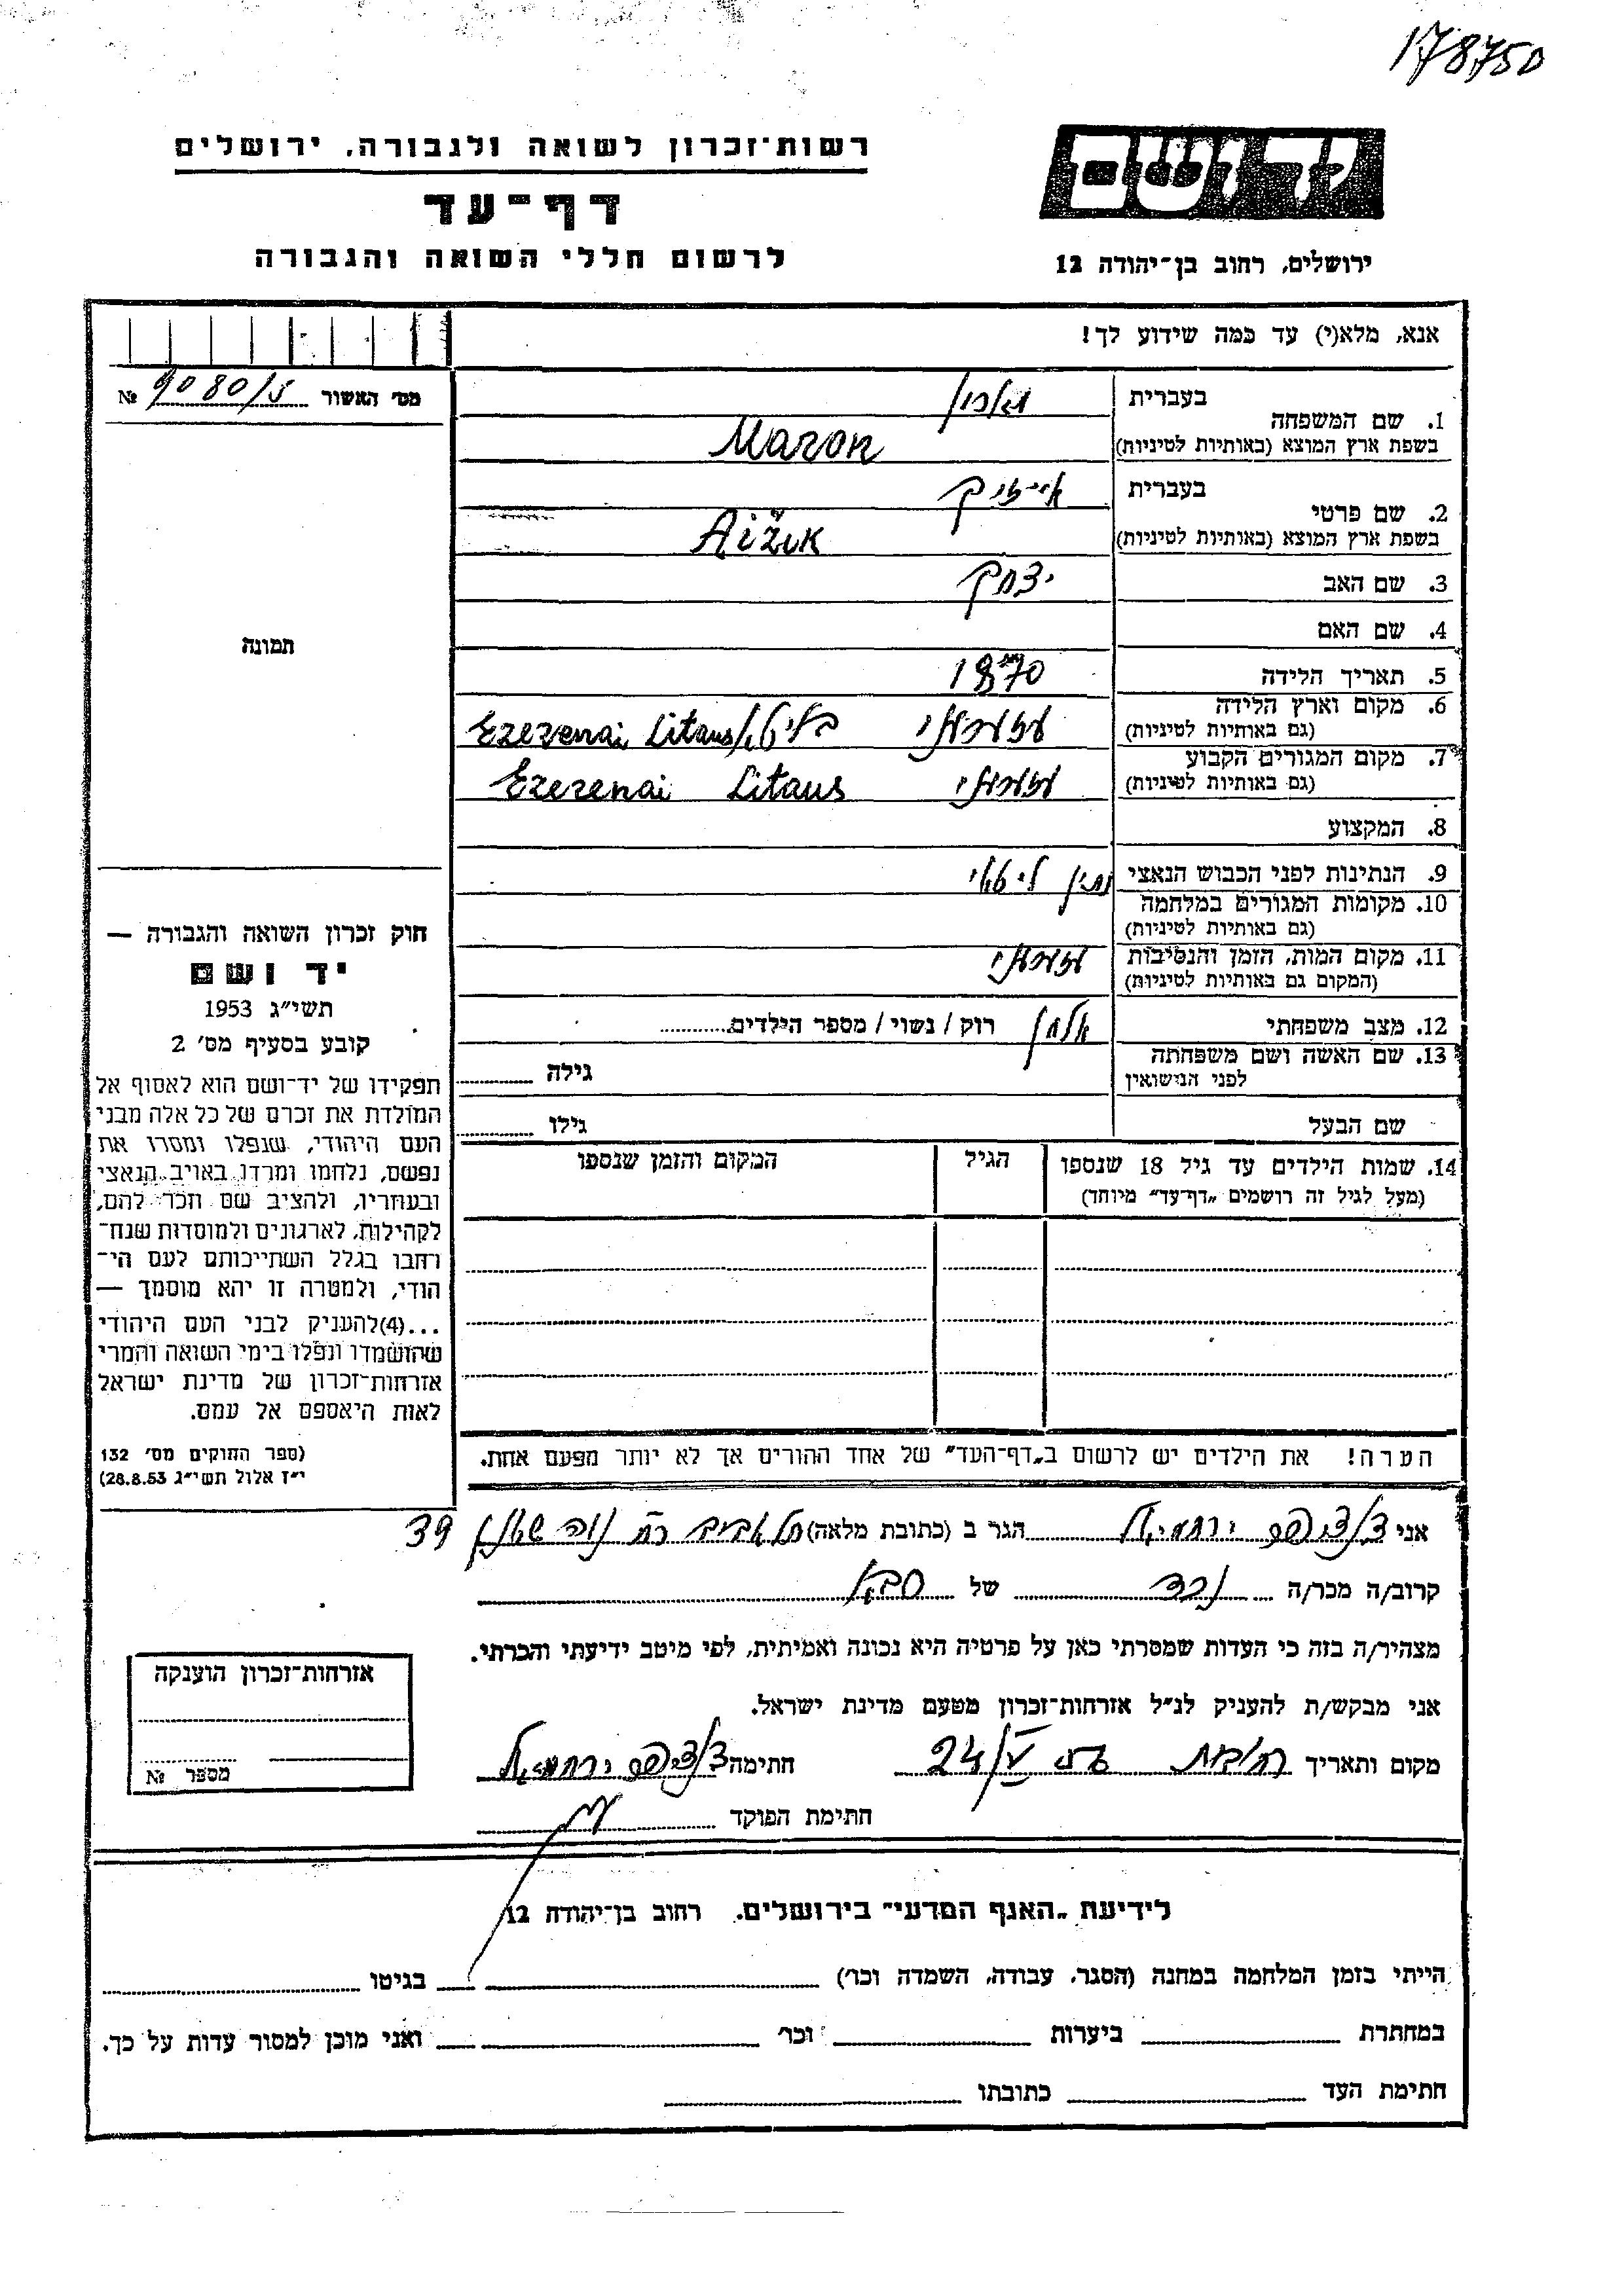 178750
רשות־זכרון לשואה ולגבורה, ירושלים
דף־עד
לרשום חללי השואה והגבורה
ידושם
ירושלים, רחוב בן־יהודה 12
אנא, מלא(י) עד כמה שידוע לך!
מס׳ האשור 9080/5 №
1. שם המשפחה
בעברית מארון
בשפת ארץ המוצא (באותיות לטיניות) Maron
2. שם פרטי
בעברית אייזיק
בשפת ארץ המוצא (באותיות לטיניות) Aižik
3. שם האב יצחק
4. שם האם
5. תאריך הלידה 1870
6. מקום וארץ הלידה
(גם באותיות לטיניות) Ezerenai Litaus
7. מקום המגורים הקבוע
(גם באותיות לטיניות) Ezerenai Litaus
8. המקצוע
9. הנתינות לפני הכבוש הנאצי נתין ליטאי
10. מקומות המגורים במלחמה
(גם באותיות לטיניות)
11. מקום המות, הזמן והנסיבות
(המקום גם באותיות לטיניות)
12. מצב משפחתי אלמן רוק / נשוי / מספר הילדים
13. שם האשה ושם משפחתה
לפני הנישואין
גילה
שם הבעל
גילו
14. שמות הילדים עד גיל 18 שנספו
(מעל לגיל זה רושמים „דף־עד״ מיוחד)
הגיל
המקום והזמן שנספו
הערה! את הילדים יש לרשום ב„דף־העד״ של אחד ההורים אך לא יותר מפעם אחת.
תמונה
חוק זכרון השואה והגבורה —
יד ושם
תשי״ג 1953
קובע בסעיף מס׳ 2
תפקידו של יד־ושם הוא לאסוף אל
המולדת את זכרם של כל אלה מבני
העם היהודי, שנפלו ומסרו את
נפשם, נלחמו ומרדו באויב הנאצי
ובעוזריו, ולהציב שם וזכר להם,
לקהילות, לארגונים ולמוסדות שנח־
רחבו בגלל השתייכותם לעם הי־
הודי, ולמטרה זו יהא מוסמך —
...(4) להעניק לבני העם היהודי
שהושמדו ונפלו בימי השואה והמרי
אזרחות־זכרון של מדינת ישראל
לאות היאספם אל עמם.
(ספר החוקים מס׳ 132
י״ז אלול תשי״ג 28.8.53)
אני ירחמיאל הגר ב (כתובת מלאה) תל אביב נוה שאנן 39
קרוב/ה מכר/ה נכד של סבא
מצהיר/ה בזה כי העדות שמסרתי כאן על פרטיה היא נכונה ואמיתית, לפי מיטב ידיעתי והכרתי.
אני מבקש/ת להעניק לנ״ל אזרחות־זכרון מטעם מדינת ישראל.
מקום ותאריך רחובות 24/V חתימה ירחמיאל
חתימת הפוקד
אזרחות־זכרון הוענקה
מספר №
לידיעת „האגף המדעי״ בירושלים, רחוב בן־יהודה 12
הייתי בזמן המלחמה במחנה (הסגר, עבודה, השמדה וכו׳) בגיטו
במחתרת ביערות וכו׳ ואני מוכן למסור עדות על כך.
חתימת העד כתובתו